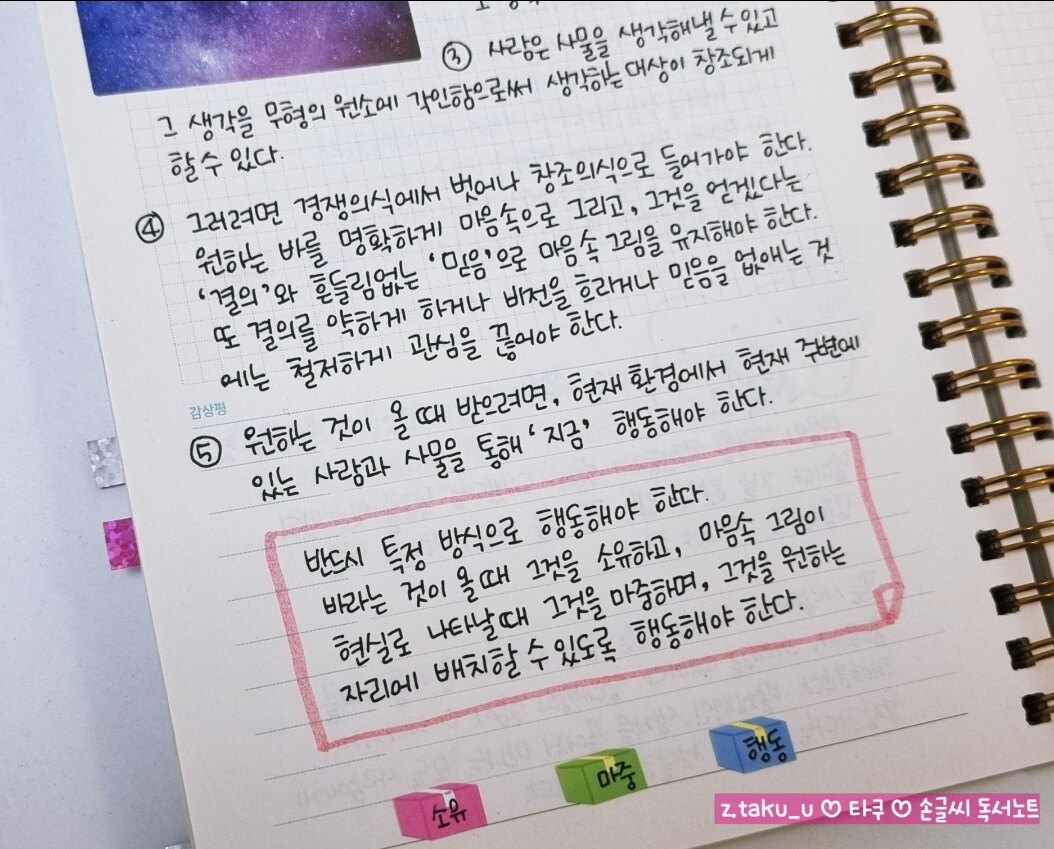 ③ 사람은 사물을 생각해낼 수 있고
그 생각을 무형의 원소에 각인함으로써 생각하는 대상이 창조되게
할 수 있다.
④ 그러려면 경쟁의식에서 벗어나 창조의식으로 들어가야 한다.
원하는 바를 명확하게 마음속으로 그리고, 그것을 얻겠다는
'결의'와 흔들림없는 '믿음'으로 마음속 그림을 유지해야 한다.
또 결의를 약하게 하거나 비전을 흐리거나 믿음을 없애는 것
에는 철저하게 관심을 끊어야 한다.
감상평
⑤ 원하는 것이 올 때 받으려면, 현재 환경에서 현재 주변에
있는 사람과 사물을 통해 '지금' 행동해야 한다.
반드시 특정 방식으로 행동해야 한다.
바라는 것이 올 때 그것을 소유하고, 마음속 그림이
현실로 나타날 때 그것을 마중하며, 그것을 원하는
자리에 배치할 수 있도록 행동해야 한다.
소유
마중
행동
z.taku_u ♡ 타쿠 ♡ 손글씨 독서노트